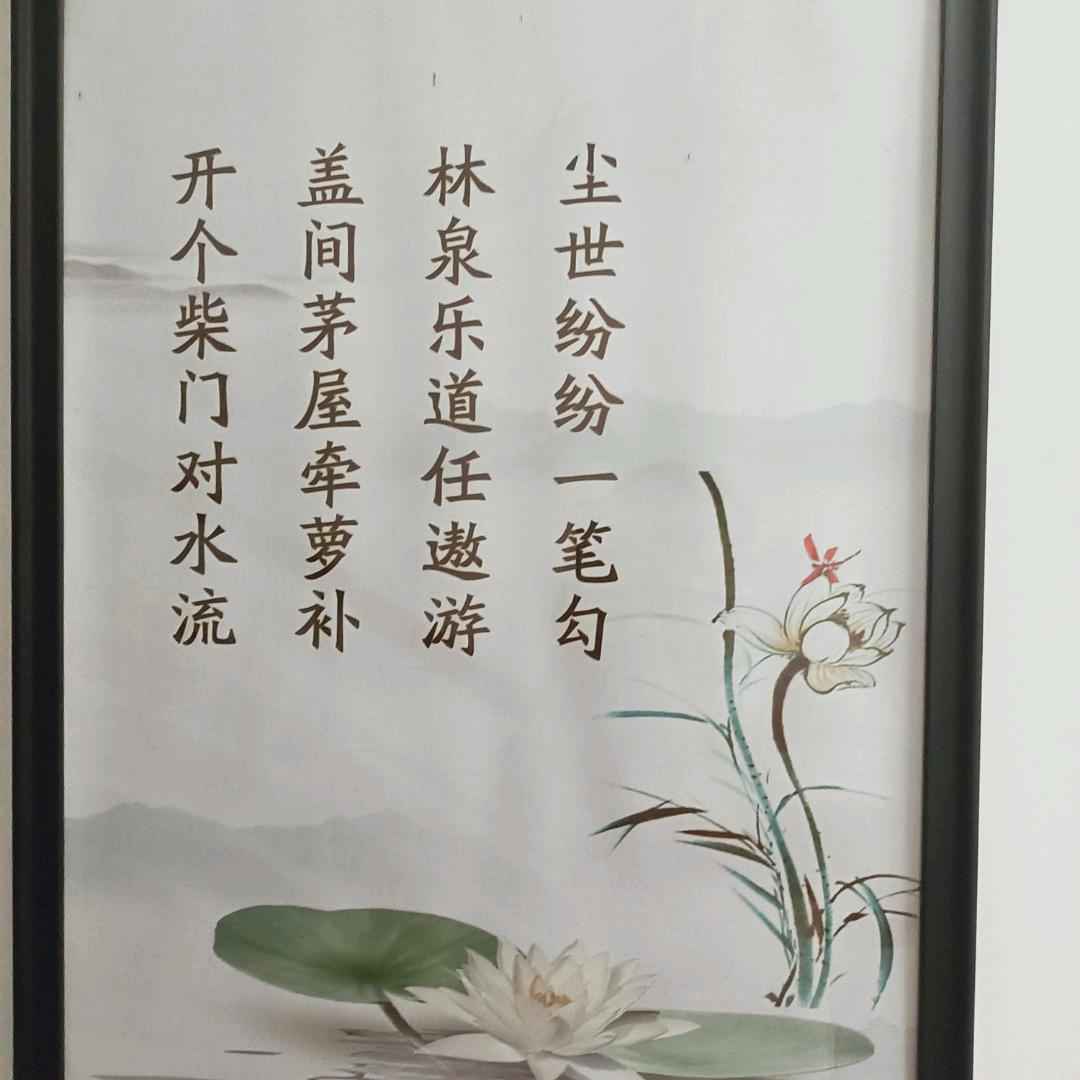 尘世纷纷一笔勾
林泉乐道任遨游
盖间茅屋牵萝补
开个柴门对水流